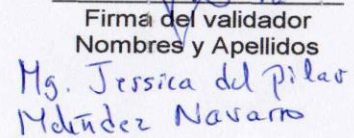 Firma del validador
Nombres y Apellidos
Mg. Jessica del Pilar
Meléndez Navarro